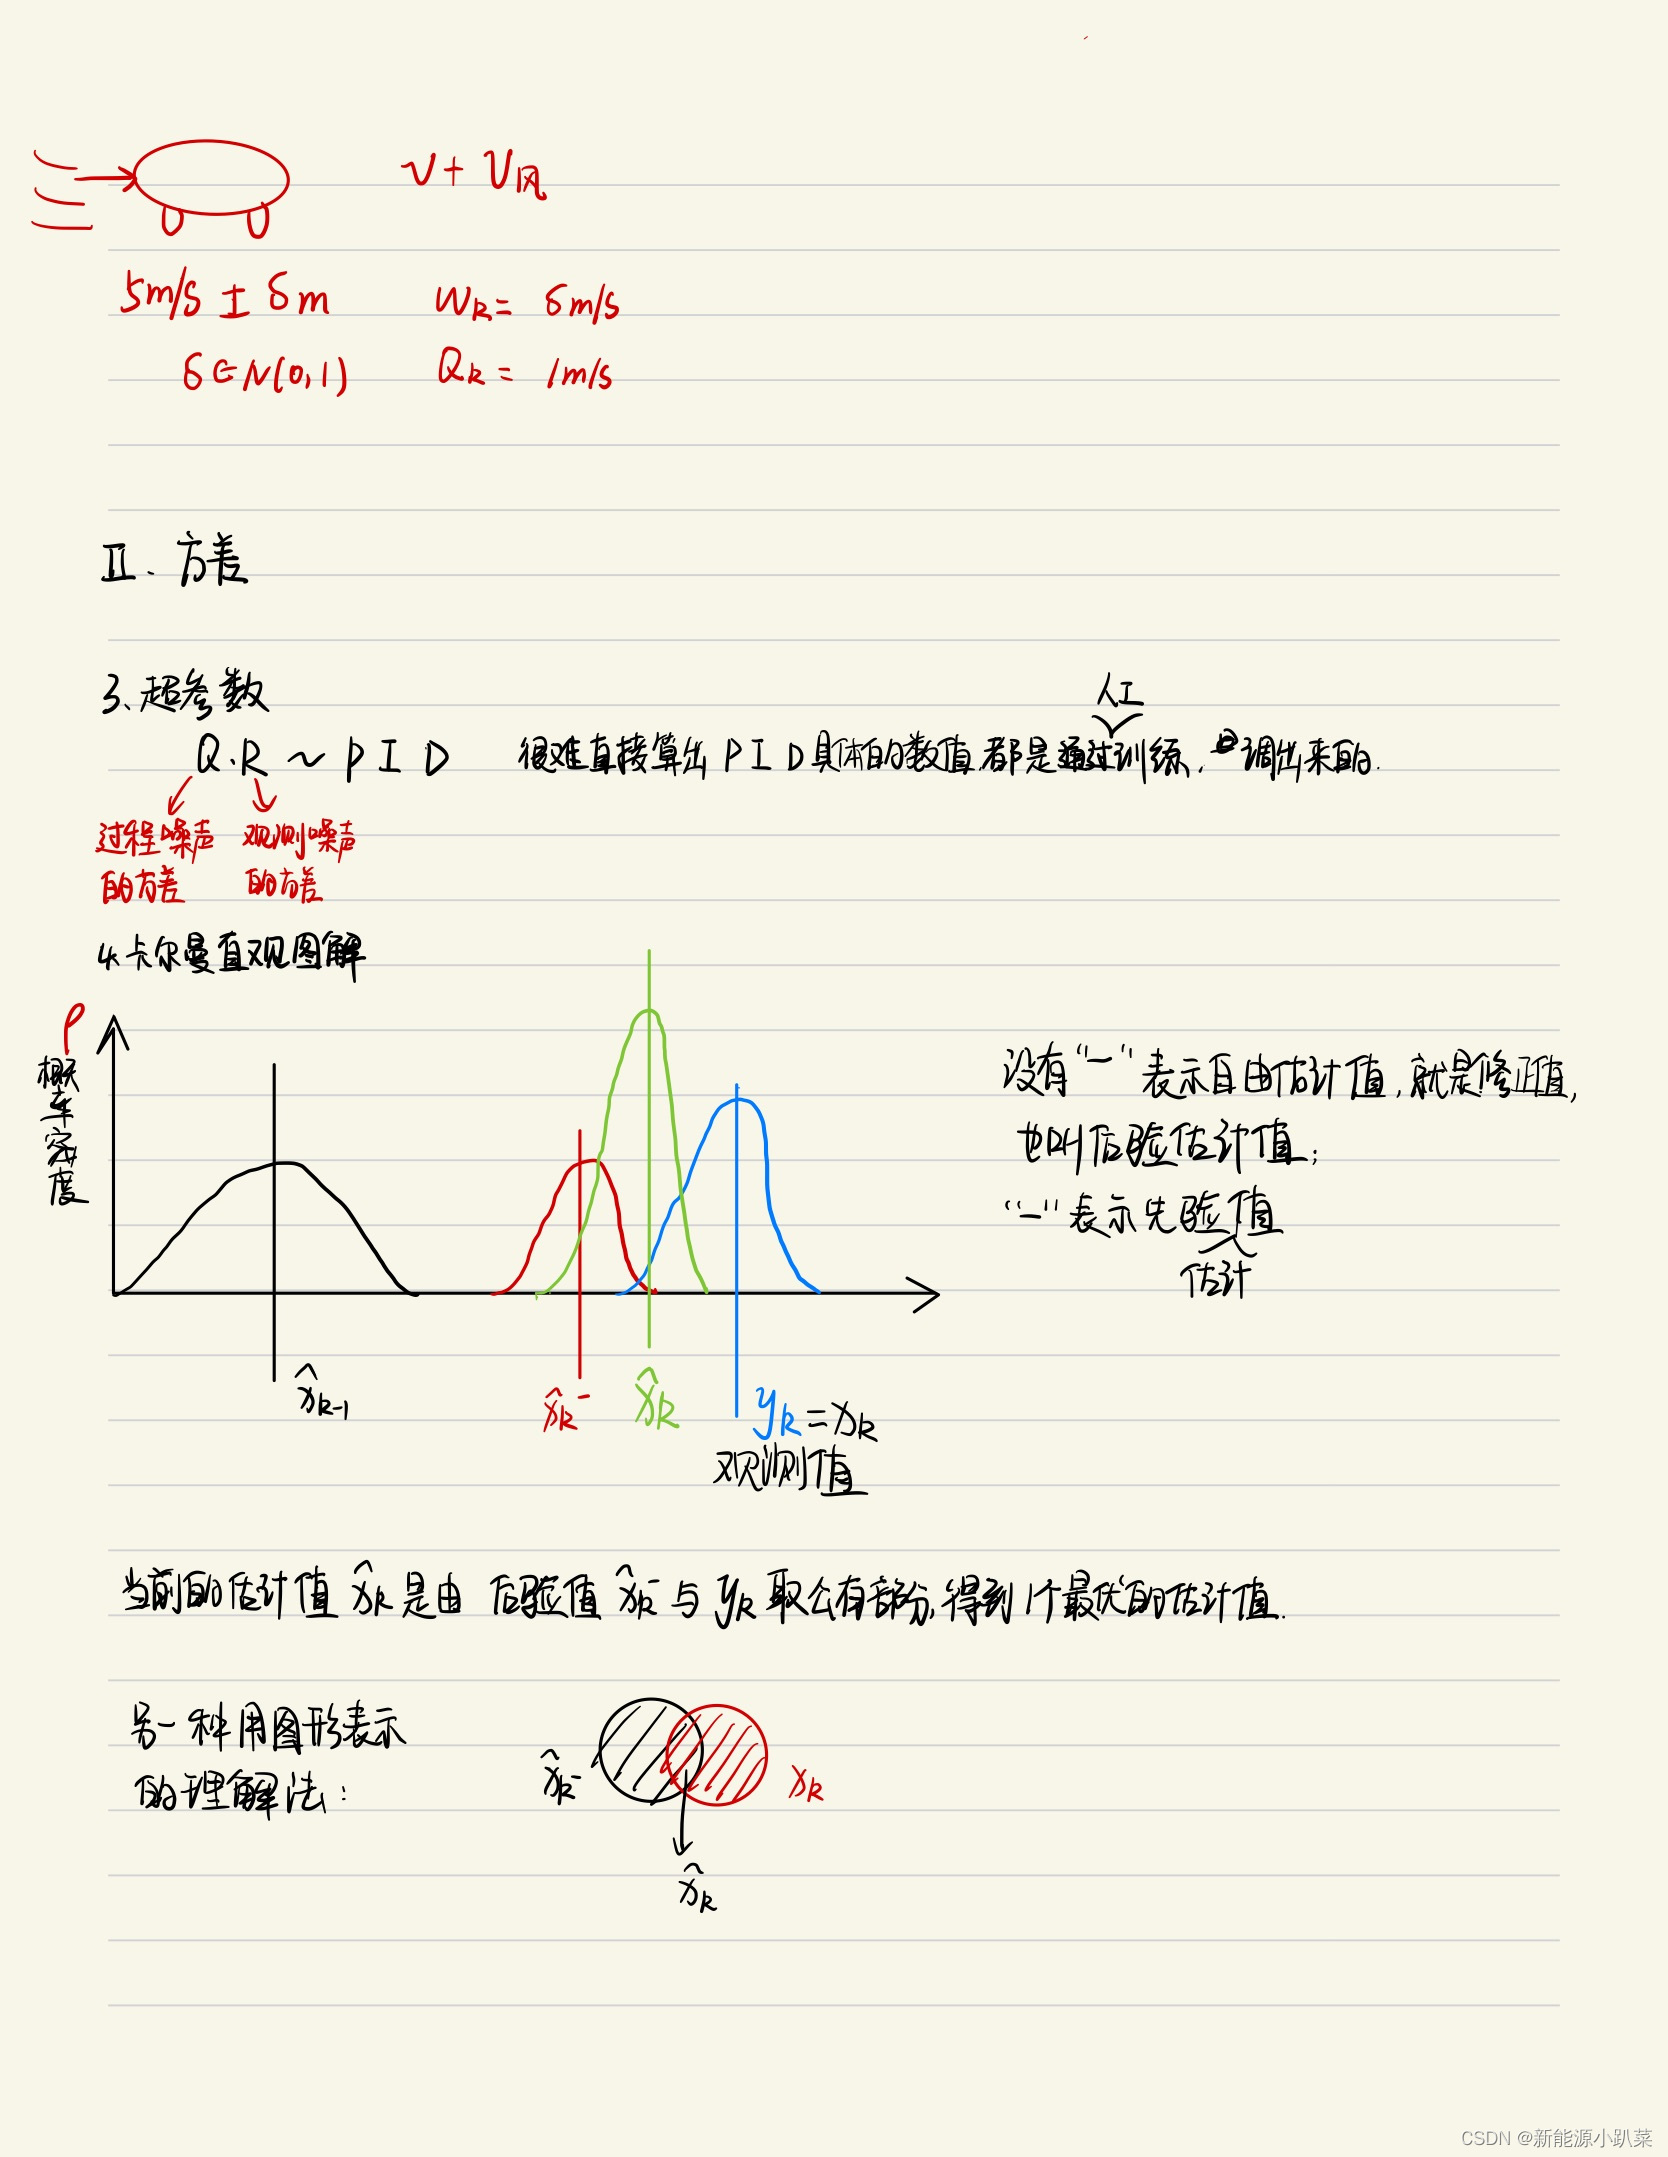 v + v风
5m/s ± δm   W_k = δm/s
δ∈N(0,1)   Q_k = 1m/s
Ⅱ. 方差
3、超参数
人工
Q.R ~ PID   很难直接算出PID具体的数值,都是通过训练,调出来的.
过程噪声 观测噪声
的方差 的方差
4.卡尔曼直观图解
ρ
概率密度
没有“-”表示自由估计值,就是修正值,
也叫后验估计值;
“-”表示先验值
估计
x̂_{k-1}   x̂_k^-   x̂_k   y_k = x_k
观测值
当前的估计值 x̂_k 是由 后验值 x̂_k^- 与 y_k 取公有部分,得到1个最优的估计值.
另一种用图形表示
的理解法:
x̂_k^-   x_k
x̂_k
CSDN @新能源小趴菜